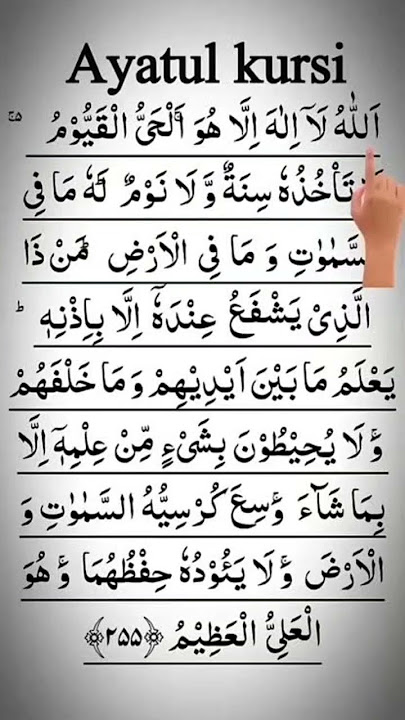 Ayatul kursi
اَللّٰهُ لَاۤ اِلٰهَ اِلَّا هُوَ ۚ اَلْحَیُّ الْقَیُّوْمُ ۚ۵
تَاْخُذُهٗ سِنَةٌ وَّ لَا نَوْمٌ ؕ لَهٗ مَا فِی
السَّمٰوٰتِ وَ مَا فِی الْاَرْضِ ؕ مَنْ ذَا
الَّذِیْ یَشْفَعُ عِنْدَهٗۤ اِلَّا بِاِذْنِهٖ ؕ
یَعْلَمُ مَا بَیْنَ اَیْدِیْهِمْ وَ مَا خَلْفَهُمْ
وَ لَا یُحِیْطُوْنَ بِشَیْءٍ مِّنْ عِلْمِهٖۤ اِلَّا
بِمَا شَآءَ ۚ وَسِعَ كُرْسِیُّهُ السَّمٰوٰتِ وَ
الْاَرْضَ ۚ وَ لَا یَـُٔوْدُهٗ حِفْظُهُمَا ۚ وَ هُوَ
الْعَلِیُّ الْعَظِیْمُ ﴿۲۵۵﴾